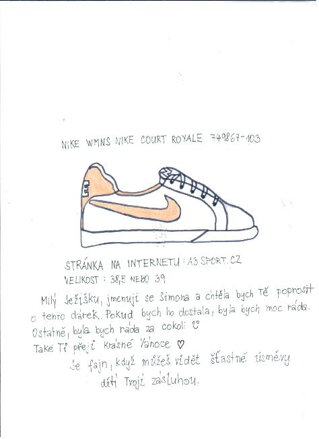 NIKE WMNS NIKE COURT ROYALE 749867-103
STRÁNKA NA INTERNETU: A3 SPORT.CZ
VELIKOST: 38,5 NEBO 39
Milý Ježíšku, jmenuji se Simona a chtěla bych Tě poprosit
o tento dárek. Pokud bych ho dostala, byla bych moc ráda.
Ostatně, byla bych ráda za cokoli ☺
Take Ti přeji krásné Vánoce ♥
Je fajn, když můžeš vidět šťastné úsměvy
dětí Tvojí zásluhou.